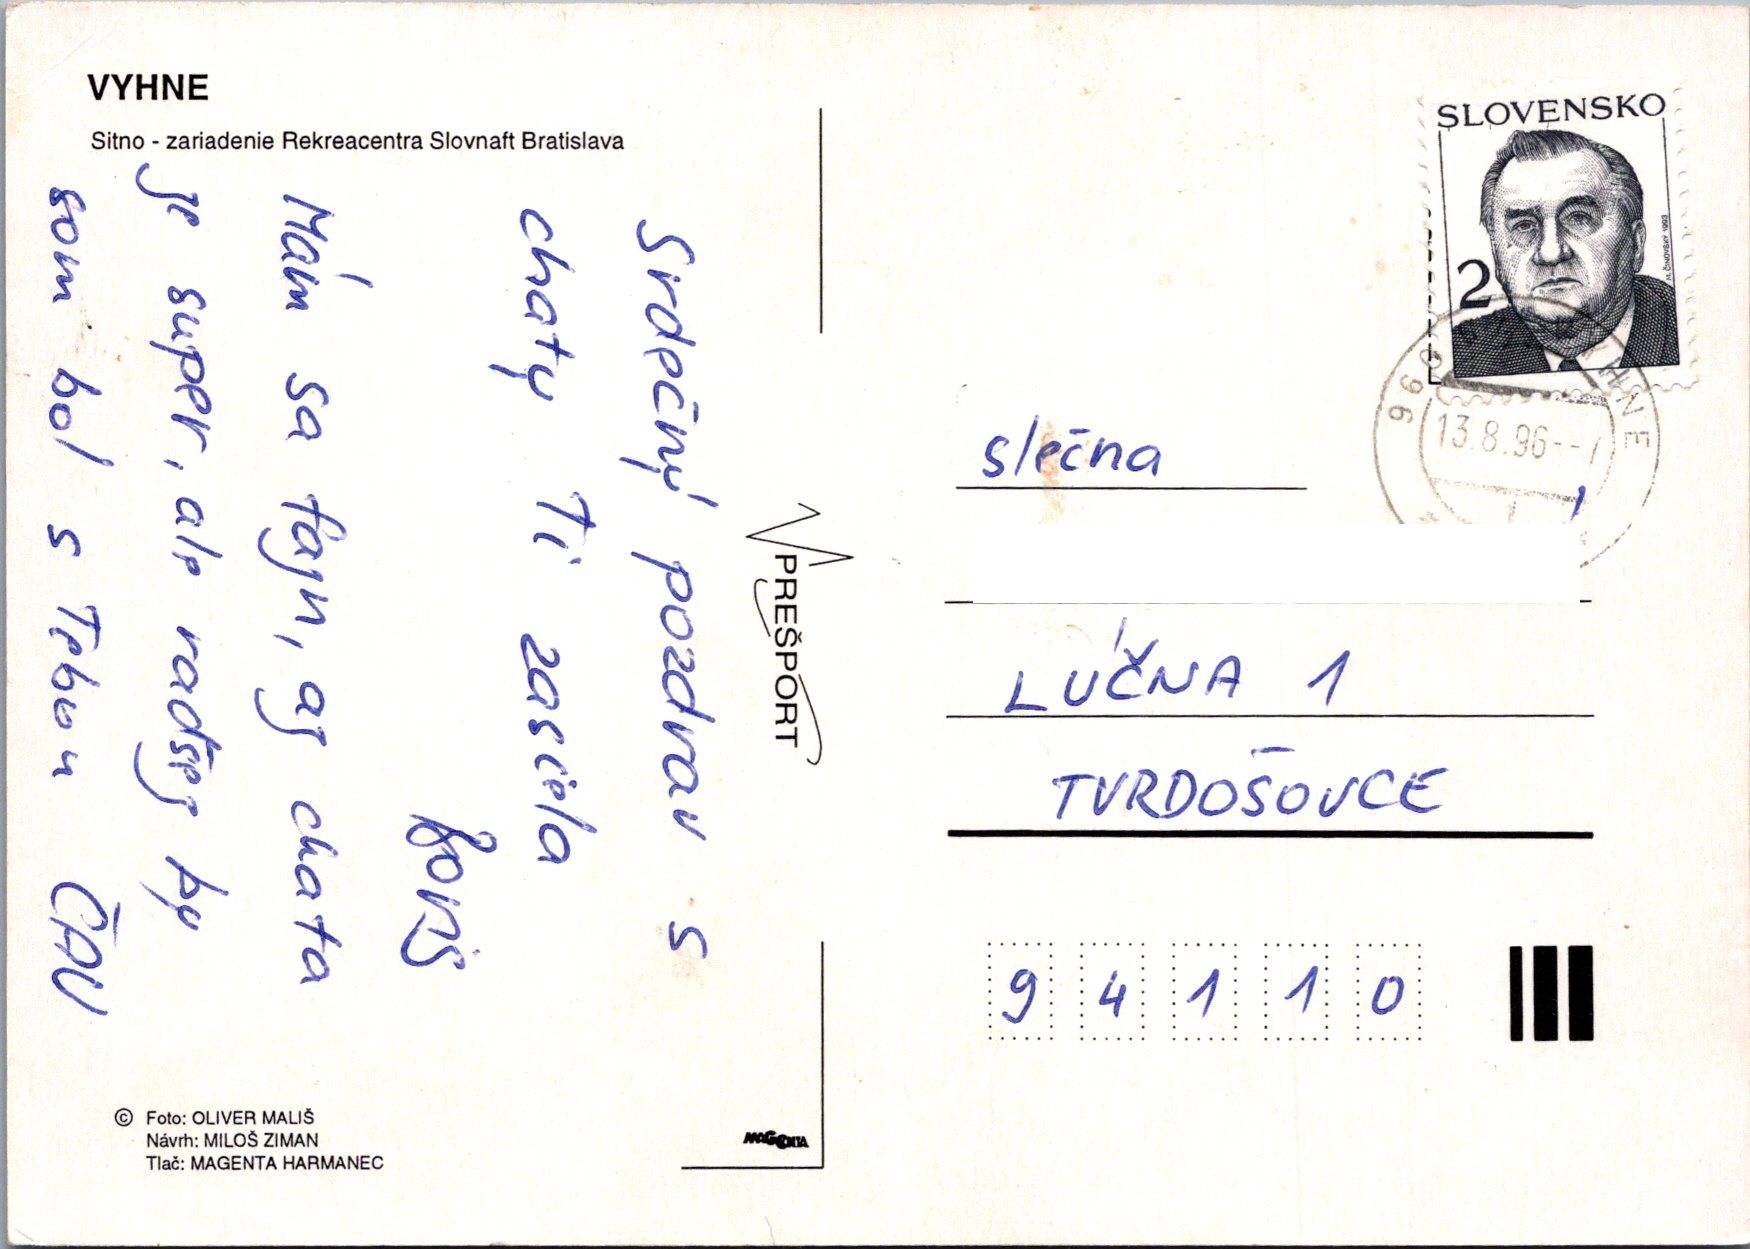 VYHNE
Sitno - zariadenie Rekreacentra Slovnaft Bratislava
Srdečný pozdrav s
chaty Ti zasiela
Boris
Mám sa fajn, aj chata
je super, ale radšej by
som bol s Tebou ČAU
© Foto: OLIVER MALIŠ
Návrh: MILOŠ ZIMAN
Tlač: MAGENTA HARMANEC
PREŠPORT
MAGENTA
SLOVENSKO
2
M. ČINOVSKÝ 1993
VYHNE
13.8.96--
slečna
LÚČNA 1
TVRDOŠOVCE
94110